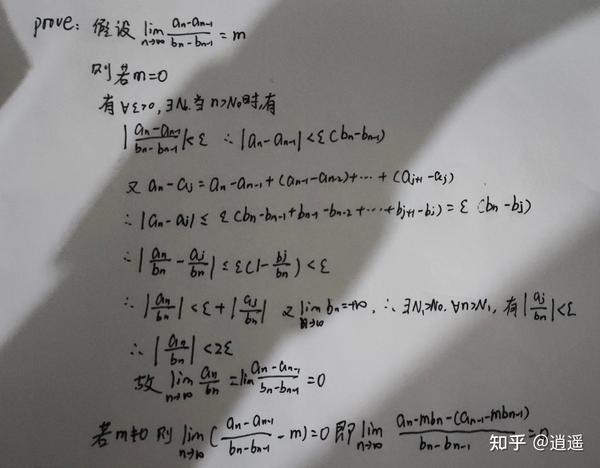 prove: 假设 lim_{n→∞} (a_n-a_{n-1})/(b_n-b_{n-1}) = m
则若m=0
有∀ε>0, ∃N₀.当n>N₀时,有
|(a_n-a_{n-1})/(b_n-b_{n-1})|<ε ∴|a_n-a_{n-1}|<ε(b_n-b_{n-1})
又 a_n-a_j = a_n-a_{n-1}+(a_{n-1}-a_{n-2})+···+(a_{j+1}-a_j)
∴|a_n-a_j| ≤ ε(b_n-b_{n-1}+b_{n-1}-b_{n-2}+···+b_{j+1}-b_j)=ε(b_n-b_j)
∴|a_n/b_n - a_j/b_n| ≤ ε(1-b_j/b_n)<ε
∴|a_n/b_n|<ε+|a_j/b_n| 又lim_{n→∞} b_n=+∞, ∴∃N₁>N₀.∀n>N₁,有|a_j/b_n|<ε
∴|a_n/b_n|<2ε
故 lim_{n→∞} a_n/b_n = lim (a_n-a_{n-1})/(b_n-b_{n-1}) =0
若m≠0 则 lim_{n→∞}((a_n-a_{n-1})/(b_n-b_{n-1}) - m)=0 即 lim_{n→∞} (a_n-mb_n-(a_{n-1}-mb_{n-1}))/(b_n-b_{n-1}) =0
知乎 @逍遥